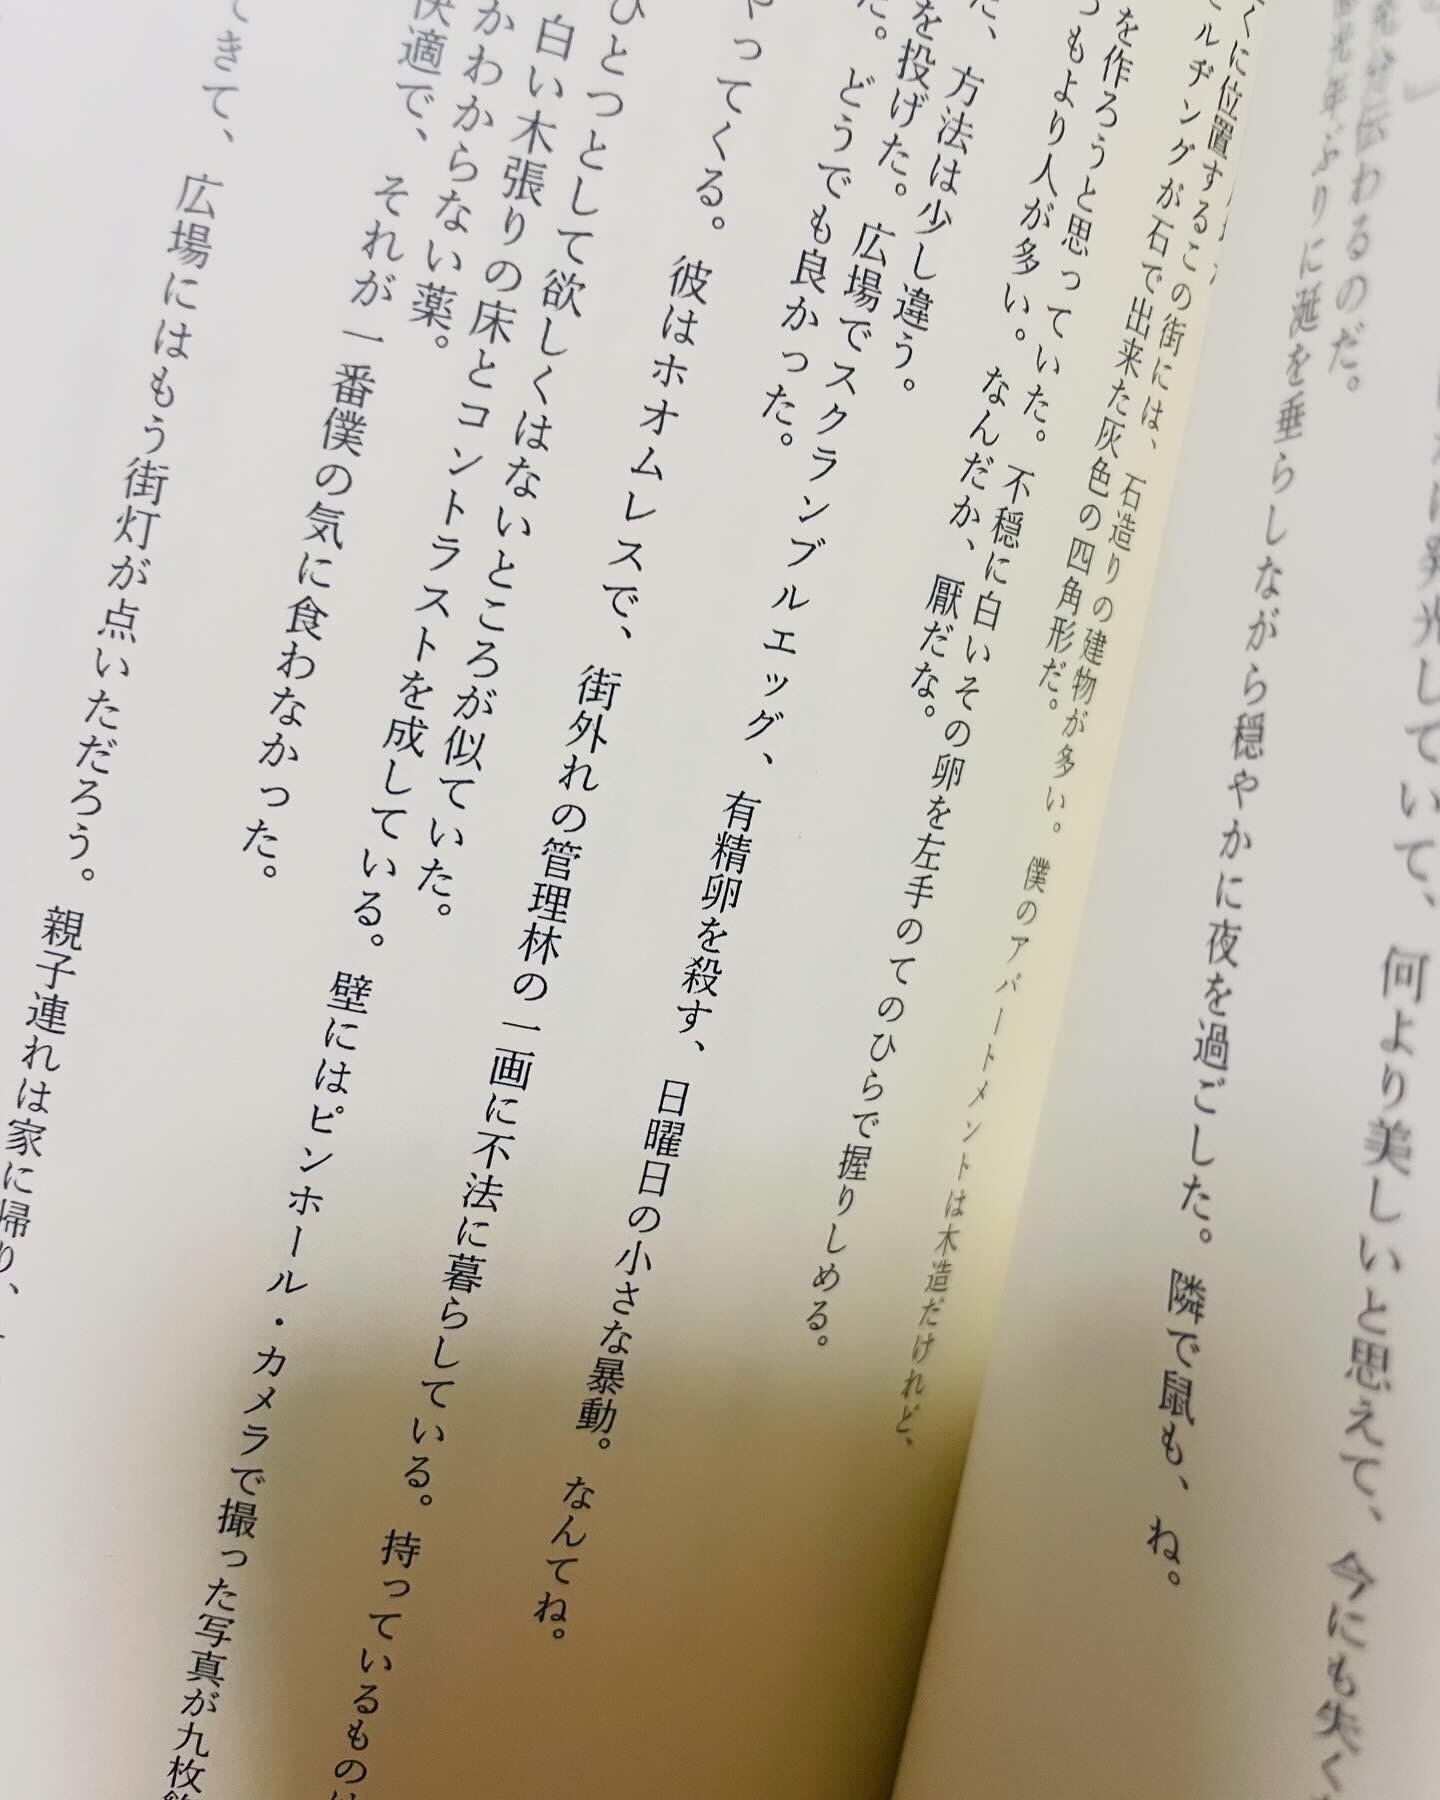 に発光していて、何より美しいと思えて、今にも失く
分伝わるのだ。
光年ぶりに涎を垂らしながら穏やかに夜を過ごした。隣で鼠も、ね。
くに位置するこの街には、石造りの建物が多い。僕のアパートメントは木造だけれど、
ルヂングが石で出来た灰色の四角形だ。
を作ろうと思っていた。不穏に白いその卵を左手のてのひらで握りしめる。
つもより人が多い。なんだか、厭だな。
た、方法は少し違う。
を投げた。広場でスクランブルエッグ、有精卵を殺す、日曜日の小さな暴動。なんてね。
た。どうでも良かった。
やってくる。彼はホオムレスで、街外れの管理林の一画に不法に暮らしている。持っているものは
ひとつとして欲しくはないところが似ていた。
白い木張りの床とコントラストを成している。壁にはピンホール・カメラで撮った写真が九枚
かわからない薬。
快適で、それが一番僕の気に食わなかった。
てきて、広場にはもう街灯が点いただろう。親子連れは家に帰り、